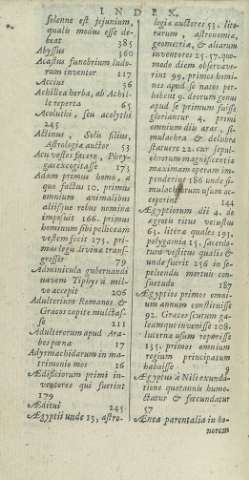 INDEX.
solenne est jejunium,
qualis modus esse de-
beat 385
Abyssus 560
Acastus funebrium ludo-
rum inventor 117
Accius 36
Achillea herba, ab Achil-
le reperta 65
Acoluthi, seu acolythi
245
Actinus, Solis filius,
Astrologia auctor 53
Acu vestes facere, Phry-
gas excogitasse 173
Adam primus homo, à
quo factus 10. primus
omnium animalibus
aliisque rebus nomina
imposuit 166. primus
hominum sibi pelliceam
vestem fecit 173. pri-
mus legis divinæ trans-
gressor 79
Adminicula gubernandi
navem Tiphys à mil-
vo accepit 206
Adulterium Romanos &
Græcos capite mulctas-
se 211
Adulterorum apud Ara-
bes pœna 17
Adyrmachidarum in ma-
trimonio mos 16
Ædificiorum primi in-
ventores qui fuerint
179
Æditui 245
Ægyptii unde 15, astro-
logiæ auctores 53. lite-
rarum, astronomia,
geometria, & aliarum
inventores 25. 57. quo-
modo diem observave-
rint 99, primos homi-
nes apud se natos per-
hibent 9. deorum genus
apud se primum fuisse
gloriantur 4. primi
omnium diis aras, si-
mulachra, & delubra
statuere 22. cur sepul-
chrorum magnificentia
maximam operam im-
penderint 180 unde si-
mulachrorum usum acce-
perint 144
Ægyptiorum dii 4. de
ægrotis ritus vetustus
63. litera quales 191.
polygamia 15. sacerdo-
tum vestitus qualis &
unde fuerit 256 in se-
peliendis mortuis con-
suetudo 187
Ægyptios primos omni-
um annum constituisse
92. Græcos scutum ga-
leamque invenisse 208.
lucerna usum reperisse
135. primos omnium
regium principatum
habuisse 9
Ægyptus à Nili exunda-
tione quotannis humec-
tatur & fœcundatur
57
Ænea parentalia in ho-
norem